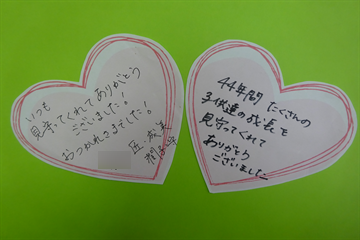 いつも
見守ってくれてありがとう
ございました！
おつかれさまでした！
44年間 たくさんの
子供達の成長を
見守ってくれて
ありがとう
ございました